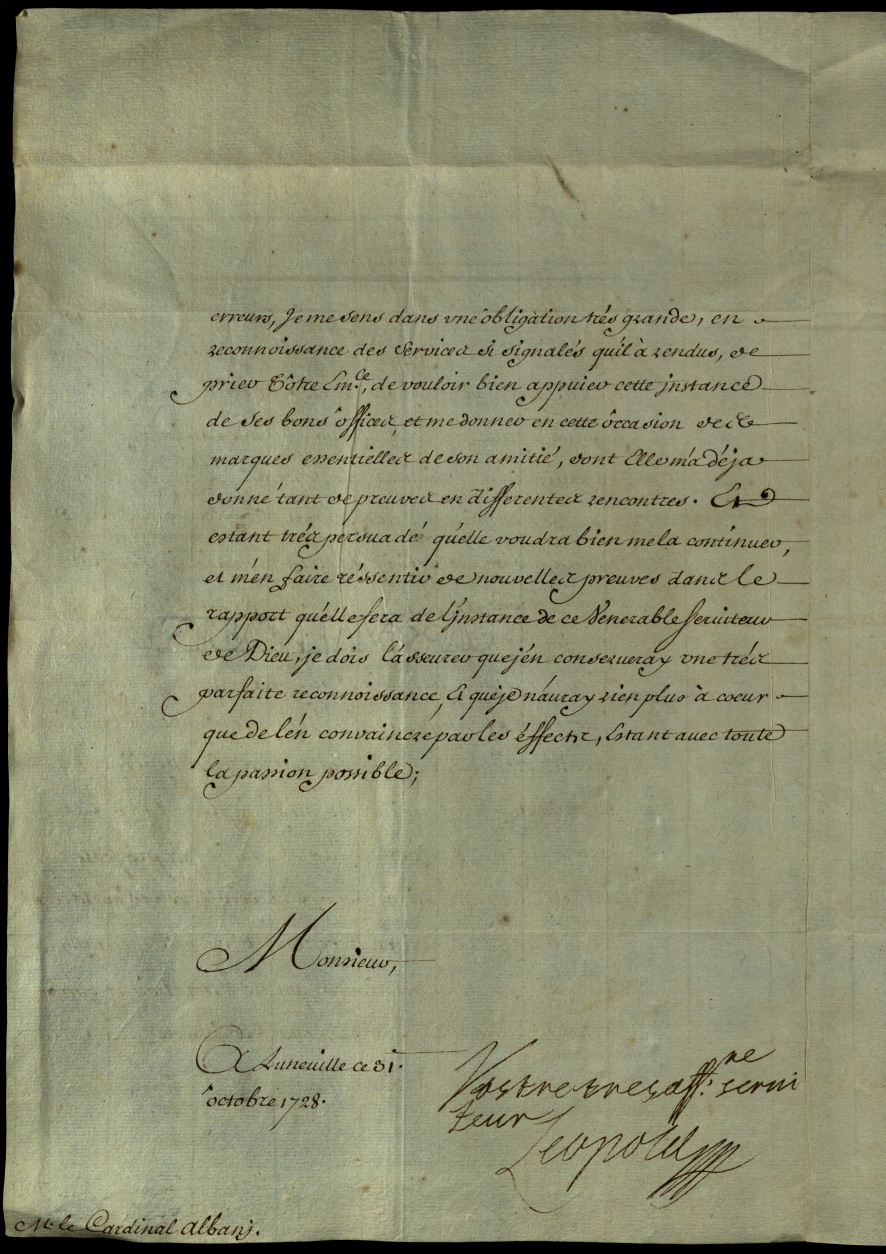 erreurs, Je me sens dans vne óbligation trés grande, en
reconnoissance des services si signalés qu'il à rendus, de
prier Vôtre Em.ce, de vouloir bien appuier cette jnstance
de ses bons offices, et me donner en cette òccasion des
marques essentielles de son amitié, dont Elle m'a déja
donné tant de preuves en differentes rencontres. Et
estant trés persuadé qu'elle voudra bien me la continuer,
et m'en faire réssentir de nouvelles preuves dans le
rapport qu'elle fera de l'jnstance de ce Venerable serviteur
de Dieu, je dois l'ásseurer que j'én conserueray vne trés
parfaite reconnoissance, Et que je n'auray rien plus à coeur
que de l'én convaincre par les éffects, Estant avec toute
la passion possible;
Monsieur,
A Luneuille ce 31.
octobre 1728.
Vostre tres aff.ne serui
teur
Leopold
M. le Cardinal Albanj.